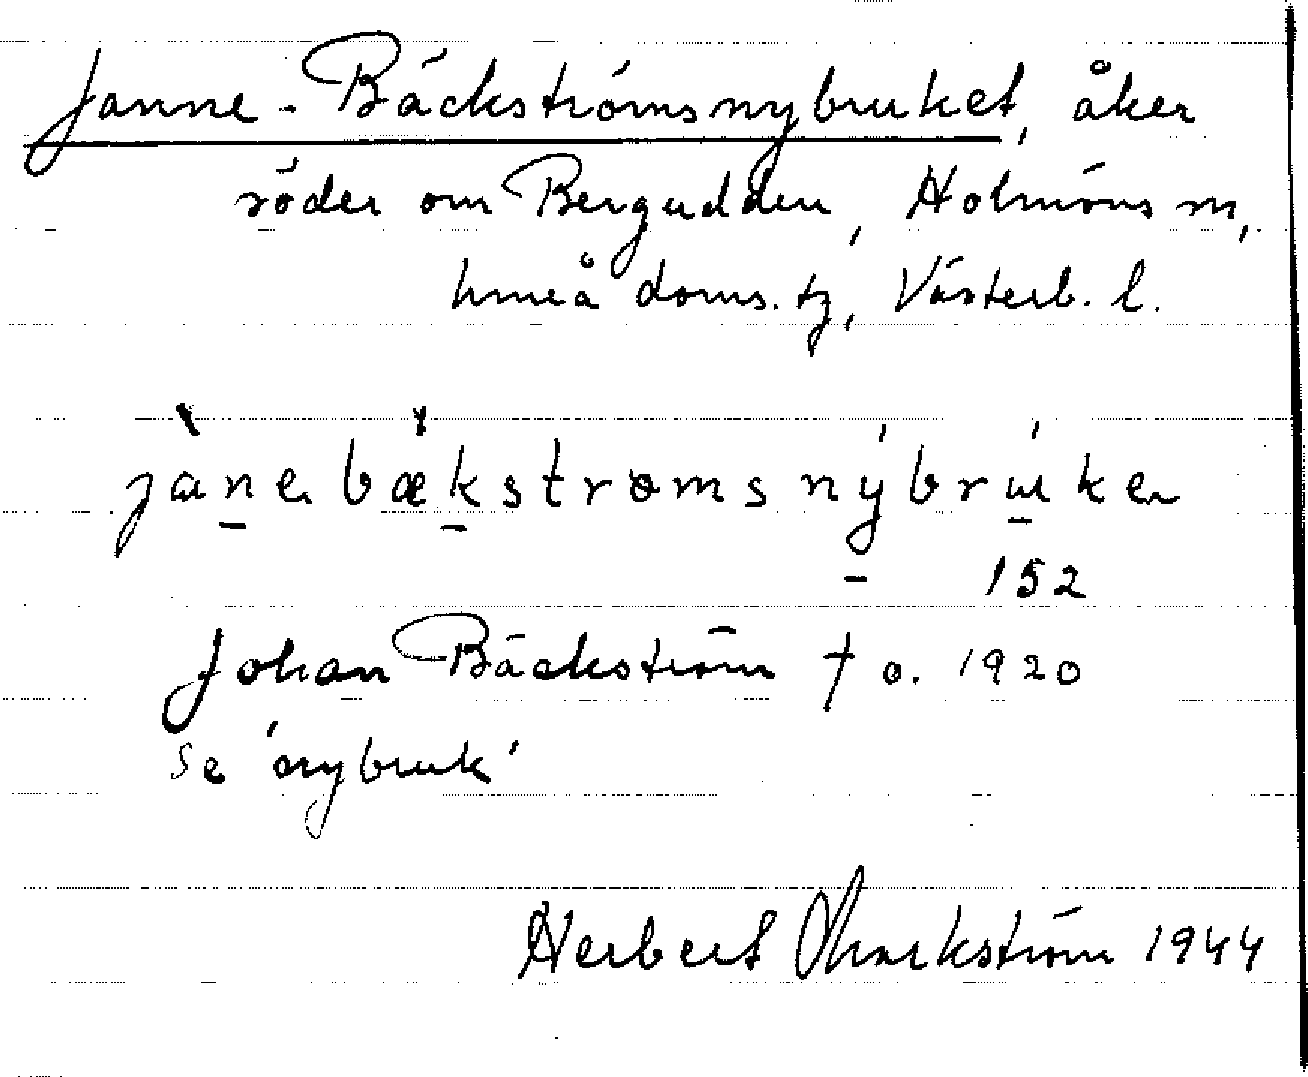 Janne-Bäckströmsnybruket, åker
söder om Bergudden, Holmöns sn,
Umeå doms. tg, Västerb. l.
jànebæ̀kstrømsnýbrúke
152
Johan Bäckström † o. 1920
Se 'nybruk'
Herbert Markström 1944